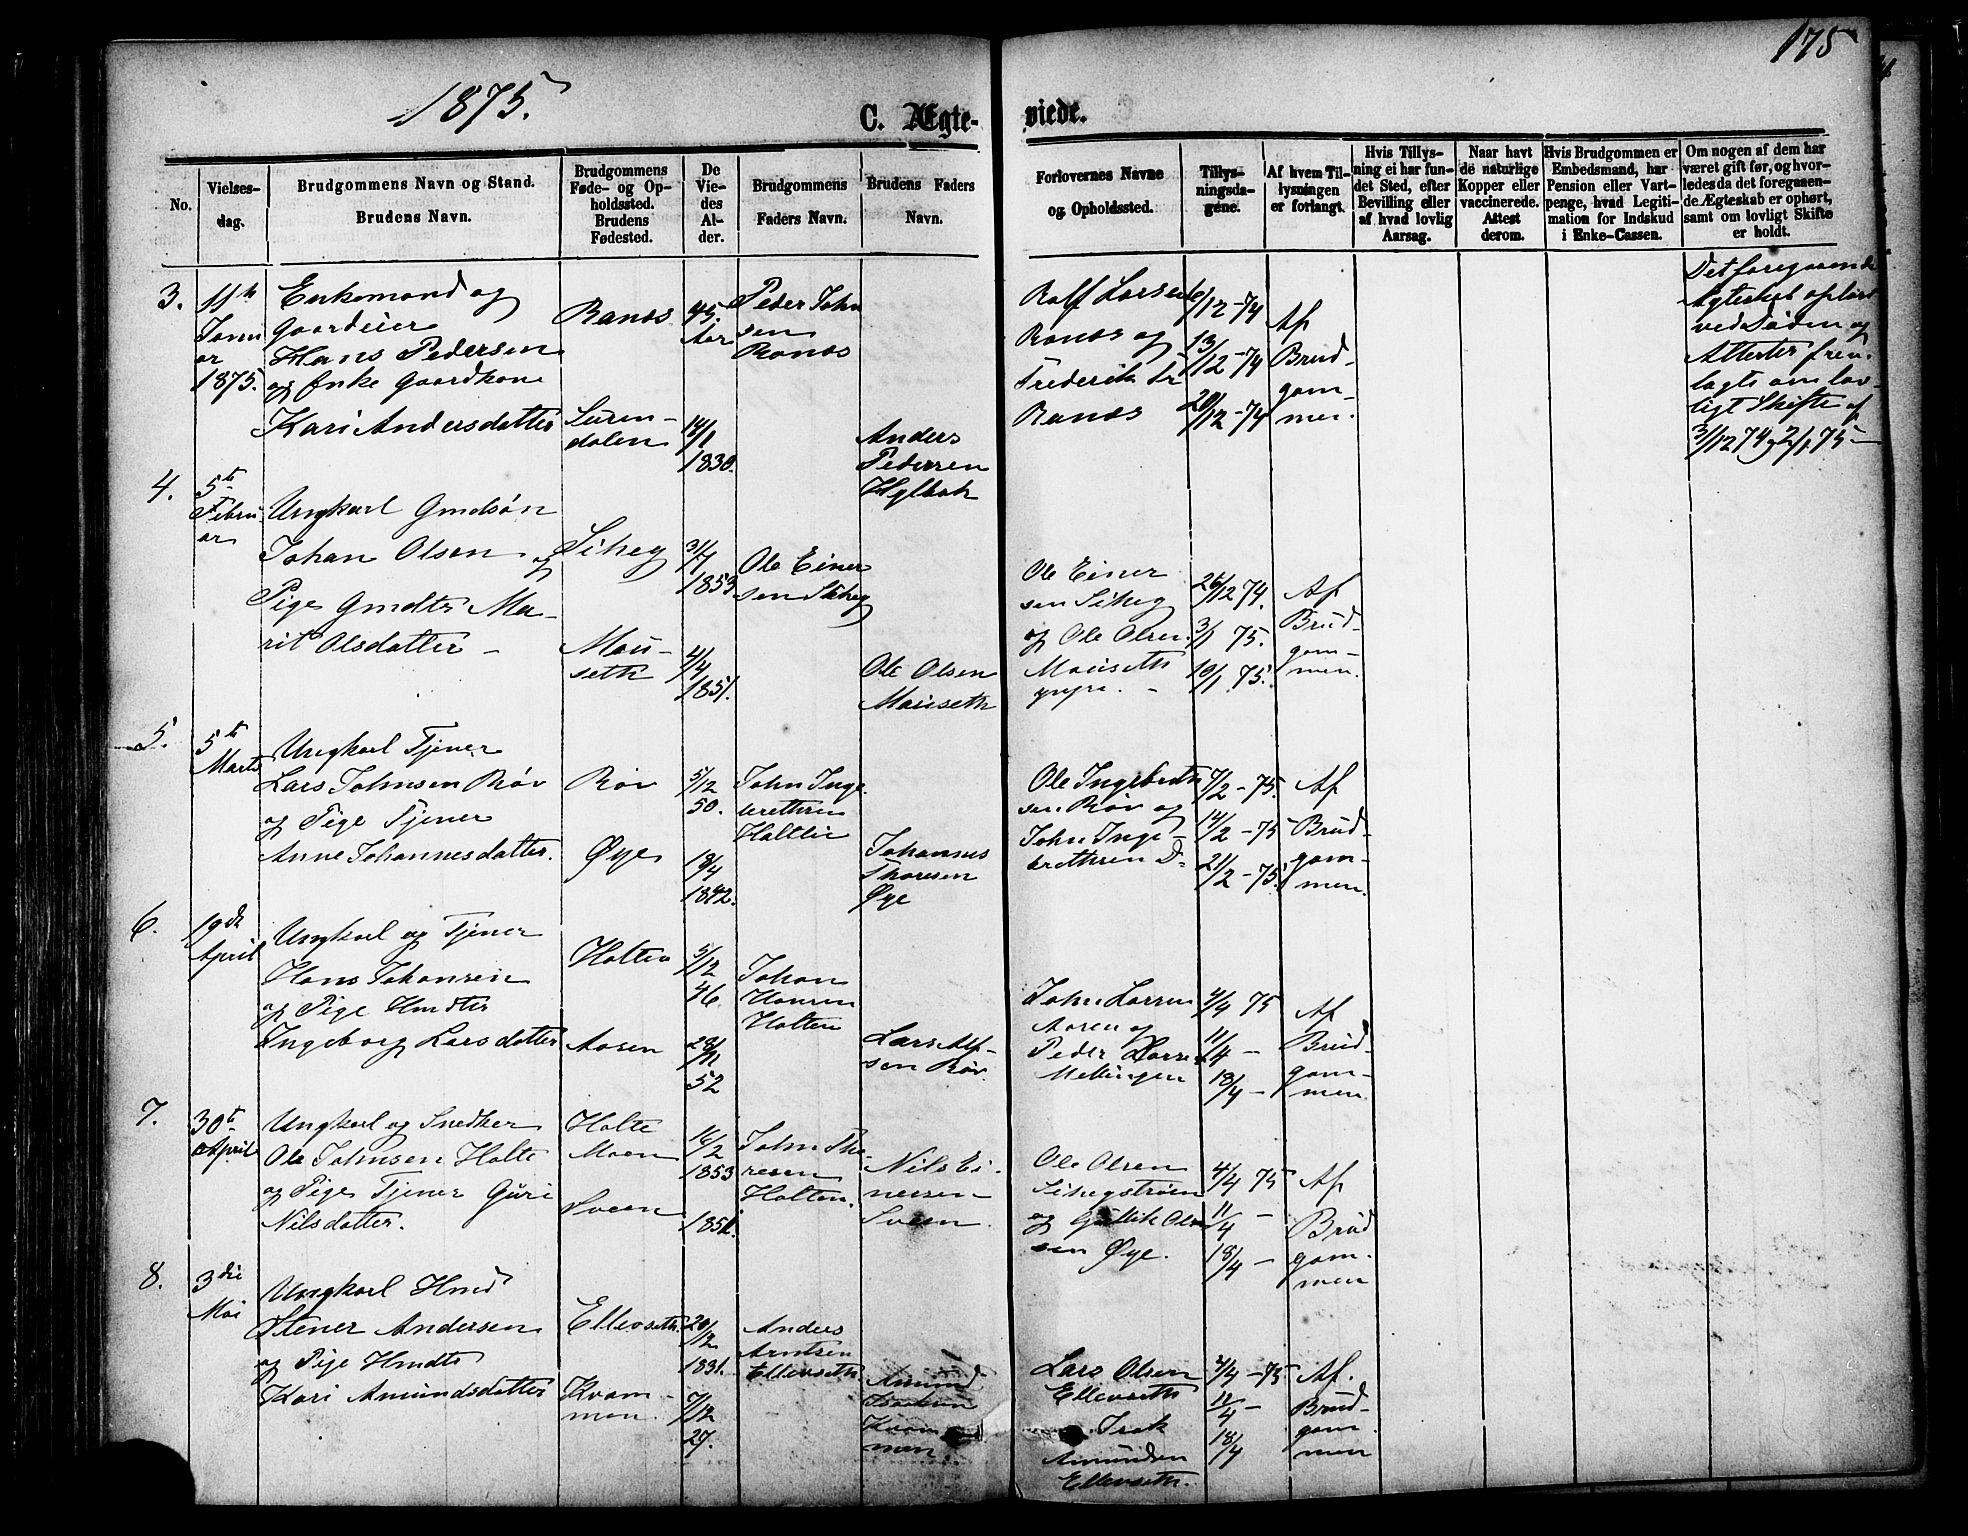 1875.
175
C. Ægte-
viede.
No.
Vielses-
dag.
Brudgommens Navn og Stand.
Brudens Navn.
Brudgommens
Føde- og Op-
holdssted.
Brudens
Fødested.
De
Vie-
des
Al-
der.
Brudgommens
Faders Navn.
Brudens Faders
Navn.
Forlovernes Navne
og Opholdssted.
Tillys-
ningsda-
gene.
Af hvem Til-
lysningen
er forlangt.
Hvis Tillys-
ning ei har fun-
det Sted, efter
Bevilling eller
af hvad lovlig
Aarsag.
Naar havt
de naturlige
Kopper eller
vaccinerede.
Attest
derom.
Hvis Brudgommen er
Embedsmand, har
Pension eller Vart-
penge, hvad Legiti-
mation for Indskud
i Enke-Cassen.
Om nogen af dem har
været gift før, og hvor-
ledes da det foregaaen-
de Ægteskab er ophørt,
samt om lovligt Skifte
er holdt.
3.
Janu
ar
1875.
Enkemand og
Gaardeier
Hans Pedersen
og Enke Gaardkone
Kari Andersdatter
Ranæs
Suren-
dalen
45
Aar
14/1
1830.
Peder John
sen
Ranæs
Anders
Pedersen
Rolf Larsen
Ranæs og
Frederik
Ranæs
6/12-74
13/12-74
20/12-74
Af
Brud-
gom-
men.
Det foregaaende
Ægteskab ophørt
ved Døden og
Attester frem-
lagte om lov-
ligt Skifte af
31/12 74 og 2/1 75
4.
5te
Febru
ar
Ungkarl Gmdsøn
Johan Olsen og
Pige Gmdtr Ma-
rit Olsdatter
Siheg
Mau-
seth
31/7
1853
4/4
1851.
Ole Einer
sen Siheg
Ole Olsen
Mauseth
Ole Einer
sen Siheg
og Ole Olsen
Mauseth
26/12 74.
3/1 75.
10/1 75.
Af
Brud-
gom-
men.
5.
5te
Marts
Ungkarl Tjener
Lars Johnsen Røv
og Pige Tjener
Anne Johannesdatter.
Røv
Øye
5/12
50.
18/4
1842.
John Inge
brethsen
Holtlie
Johannes
Thoresen
Øye
Ole Ingebreth
sen Røv og
John Inge-
brethsen Do
7/2-75.
14/2-75
21/2-75.
Af
Brud-
gom-
men.
6.
19de
April
Ungkarl og Tjener
Hans Johansen
og Pige Hmdtr
Ingeborg Larsdatter
Holten
Aasen
5/12
46.
28/11
52
Johan
Hansen
Holten
Lars
sen Røv.
John Larsen
Aasen og
Peder Larsen
Mellingen
4/4 75
11/4 -
18/4 -
Af
Brud-
gom-
men
7.
30te
April
Ungkarl og Snedker
Ole Johnsen Holte
og Pige Tjener Guri
Nilsdatter.
Holte
Moen
Sveen
16/2
1853
1851.
John Tho-
resen
Holten.
Nils Ei-
nersen
Sveen
Ole Olsen
Sihegstrøen
og Gullik Ol
sen Øye.
4/4 75
11/4 -
18/4 -
Af
Brud
gom-
men
8.
3die
Mai
Ungkarl Hmd
Stener Andersen
og Pige Hmdtr
Kari Amundsdatter
Ellevseth.
Kvam-
men
20/12
1831.
7/12
27.
Anders
Arntsen
Ellevseth.
Amund
Isaksen
Kvam
men
Lars Olsen
Ellevseth
Isak
Amundsen
Ellevseth.
4/4-75
11/4 -
18/4
Af.
Brud-
gom-
men